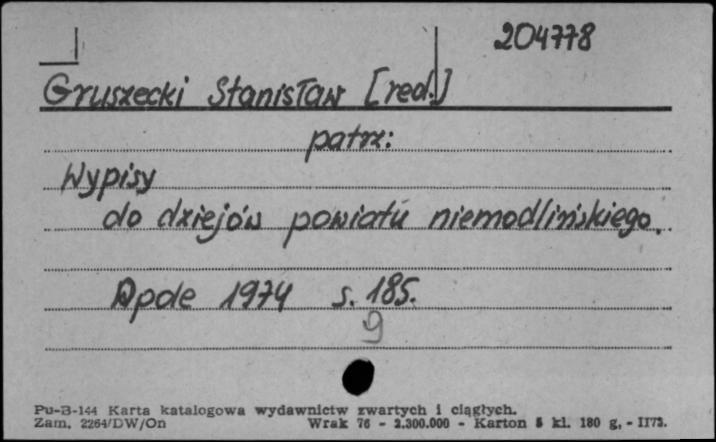 204778
Gruszecki Stanisław [red.]
patrz:
Wypisy
do dziejów powiatu niemodlińskiego.
Opole 1974 s. 185.
9
Pu-B-144 Karta katalogowa wydawnictw zwartych i ciągłych.
Zam. 2264/DW/On Wrak 76 - 2.300.000 - Karton 5 kl. 180 g, - II73.